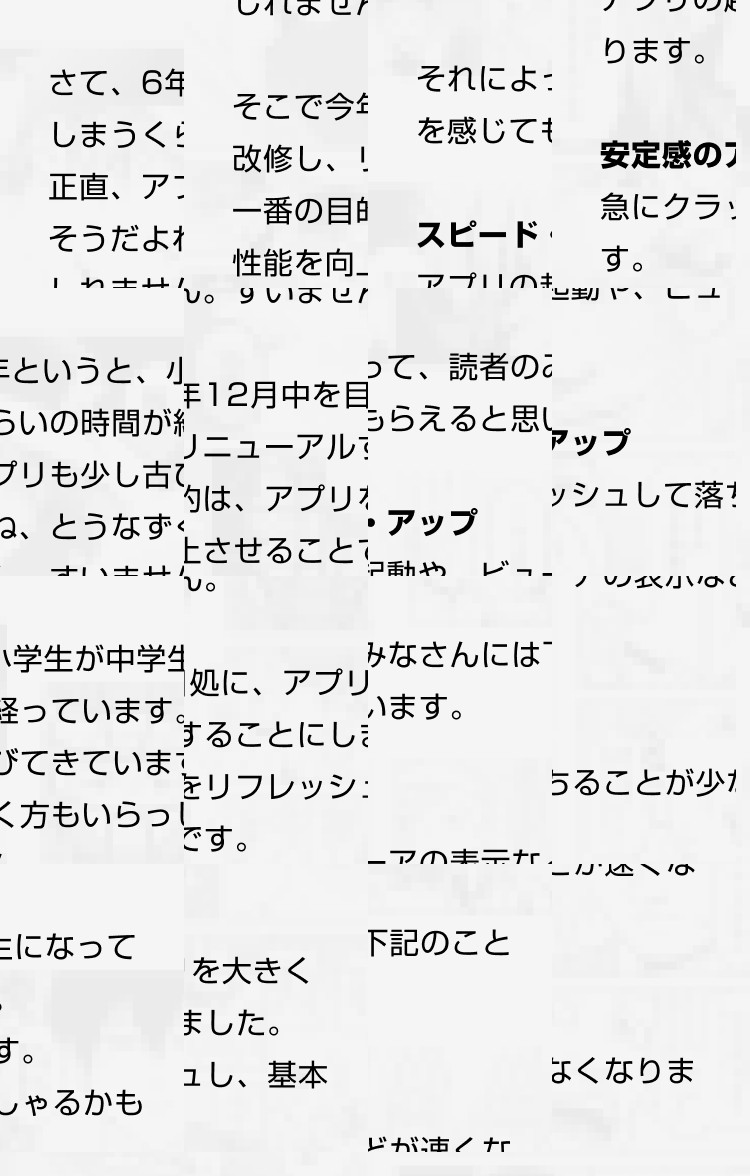 さて、6年というと、小学生が中学生になって
しまうくらいの時間が経っています。
正直、アプリも少し古びてきています。
そうだよね、とうなずく方もいらっしゃるかも
しれません。すいません。
そこで今年12月中を目処に、アプリを大きく
改修し、リニューアルすることにしました。
一番の目的は、アプリをリフレッシュし、基本
性能を向上させることです。
それによって、読者のみなさんには下記のこと
を感じてもらえると思います。
スピード・アップ
アプリの起動や、ビューアの表示などが速くな
ります。
安定感のアップ
急にクラッシュして落ちることが少なくなりま
す。